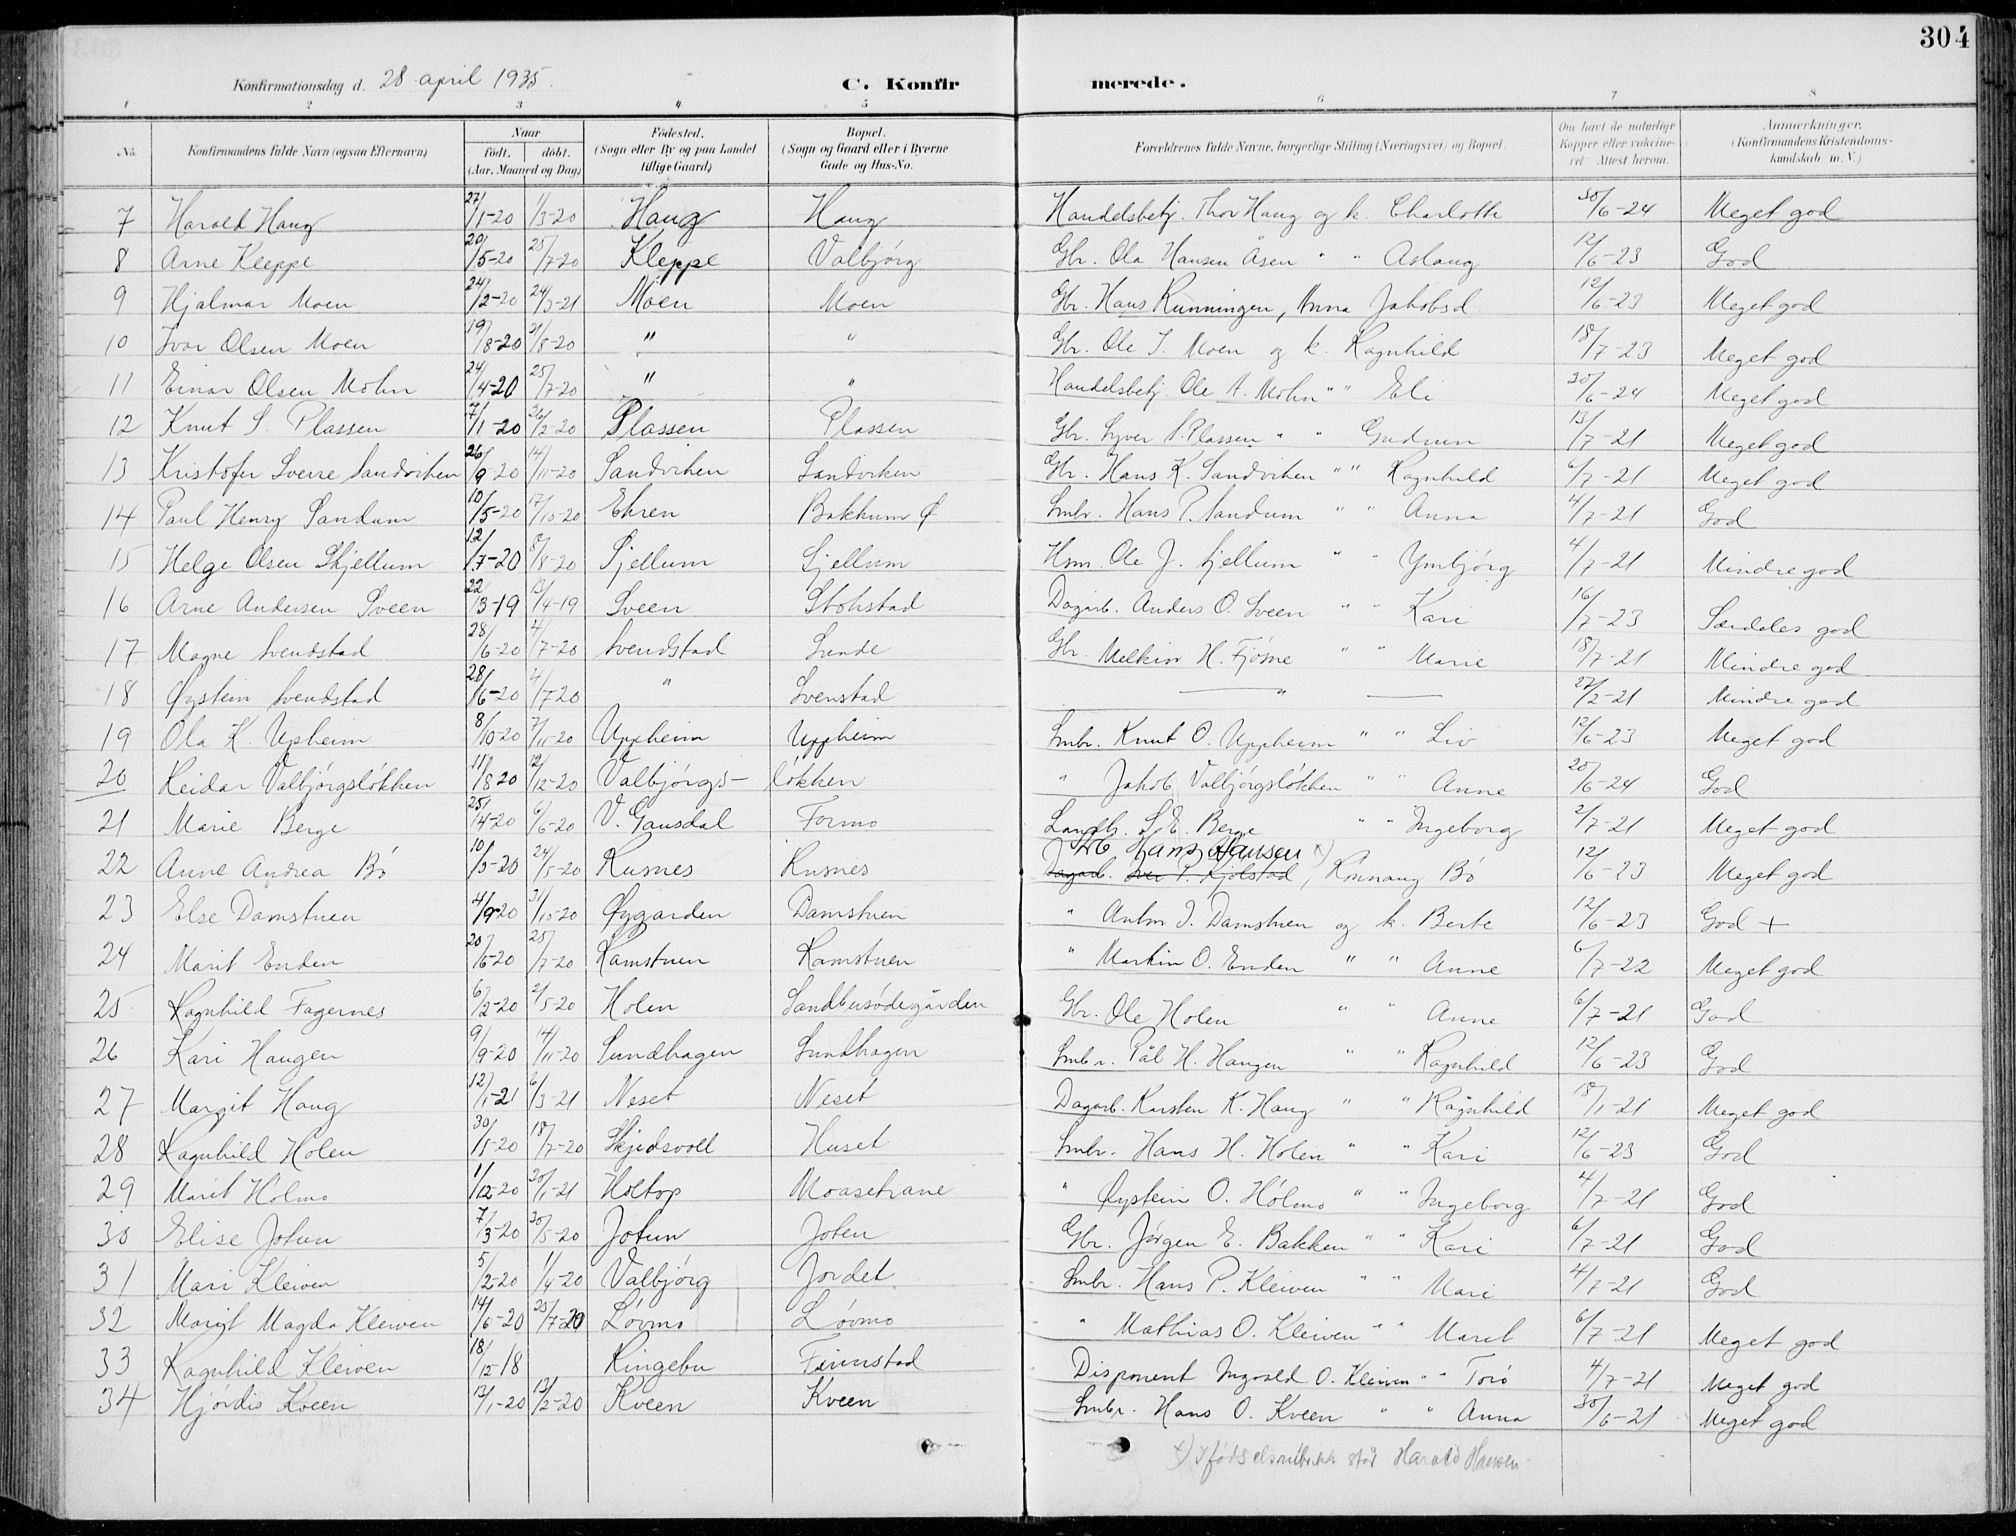 304
Konfirmationsdag d. 28 april 1935.
C. Konfirmerede.
1 2 3 " 5 6 7 8
No. Konfirmandens fulde Navn (ogsaa Efternavn) Naar födt. döbt. (Aar, Maaned og Dag) Födested. (Sogn eller By og paa Landet tillige Gaard) Bopæl. (Sogn og Gaard eller i Byerne Gade og Hus-No. Forældrenes fulde Navne, borgerlige Stilling (Næringsvei) og Bopæl. Om havt de naturlige Kopper eller vakcineret Attest herom. Anmærkninger. (Konfirmandens Kristendomskundskab m. V.)
7 Harald Haug 27/1-20 1/3-20 Haug Haug Handelsbetj. Thor Haug og k. Charlotte 30/6-24 Meget god
8 Arne Kleppe 20/5-20 25/7-20 Kleppe Valbjørg Gbr. Ola Hansen Åsen " " Aslaug 12/6-23 God
9 Hjalmar Moen 24/12-20 24/3-21 Moen Moen Gbr. Hans Runningen, Anna Jakobsd. 12/6-23 Meget god
10 Ivar Olsen Moen 19/8-20 21/8-20 " " Gbr. Ole I. Moen og k. Ragnhild 18/7-23 Meget god
11 Einar Olsen Mohn 24/4-20 25/7-20 " " Handelsbetj. Ole A. Mohn " " Eli 20/6-24 Meget god
12 Knut S. Plassen 7/1-20 26/2-20 Plassen Plassen Gbr. Syver P. Plassen " " Gudrun 13/7-21 Meget god
13 Kristofer Sverre Sandviken 26/9-20 14/11-20 Sandviken Sandviken Gbr. Hans K. Sandviken " " Ragnhild 6/7-21 Meget god
14 Paul Henry Sandum 10/5-20 17/10-20 Ekren Bakkum Ø Smbr. Hans P. Sandum " " Anna 4/7-21 God
15 Helge Olsen Skjellum 12/7-20 8/8-20 Sjellum Sjellum Hsm. Ole J. Sjellum " " Ymbjørg 4/7-21 Mindre god
16 Arne Andersen Sveen 22/3-19 13/4-19 Sveen Stokstad Dagarb. Anders O. Sveen " " Kari 16/7-23 Særdeles god
17 Magne Svendstad 28/6-20 4/7-20 Svendstad Sunde Gbr. Melkior H. Fjøsne " " Marie 18/7-21 Mindre god
18 Øystein Svendstad 28/6-20 4/7-20 " Svenstad — " — 27/2-21 Mindre god
19 Ola K. Upheim 8/10-20 7/11-20 Uppheim Uppheim Smbr. Knut O. Uppheim " " Liv 12/6-23 Meget god
20 Reidar Valbjørgsløkken 11/8 20 12/12-20 Valbjørgs- løkken " Jakob Valbjørgsløkken " " Anne 20/6-24 God
21 Marie Berge 25/4-20 6/6-20 V. Gausdal Formo Landh. S. E. Berge " " Ingeborg 2/7-21 Meget god
Hans Hansen x)
22 Anne Andrea Bö 10/3-20 24/5-20 Rusnes Rusnes Dagarb. Iver P. Kjølstad, Rönnaug Bö 12/6-23 Meget god
23 Else Damstuen 4/9-20 31/10-20 Øygarden Damstuen " Anton I. Damstuen og k. Berte 12/6-23 God +
24 Marit Enden 20/6-20 25/7-20 Ramstuen Ramstuen " Martin O. Enden " " Anne 6/7-22 Meget god
25 Ragnhild Fagernes 6/2-20 2/5-20 Holen Sandbusødegården Gbr. Ole Holen " " Anne 6/7-21 God
26 Kari Haugen 9/9-20 14/11-20 Sundhagen Sundhagen Smbr. Pål H. Haugen " " Ragnhild 12/6-23 God
27 Margit Haug 12/1-21 6/3-21 Neset Neset Dagarb. Karsten K. Haug " " Ragnhild 18/1-21 Meget god
28 Ragnhild Holen 30/5-20 18/7-20 Skjedsvoll Huset Smbr. Hans H. Holen " " Kari 12/6-23 God
29 Marit Holmo 1/12-20 30/1-21 Holtop Moasetrane " Øystein O. Hölmo " " Ingeborg 4/7-21 God
30 Elise Jotun 7/3-20 30/5-20 Jotun Joten Gbr. Jørgen E. Bakken " " Kari 6/7-21 God
31 Mari Kleiven 5/2-20 1/4-20 Valbjørg Jordet Smbr. Hans P. Kleiven " " Mari 4/7-21 God
32 Margit Magda Kleiven 14/6-20 25/7-20 Løvmo Løvmo " Mathias O. Kleiven " " Marit 6/7-21 Meget god
33 Ragnhild Kleiven 18/12-18 Ringebu Finnstad Disponent Ingvald O. Kleiven " " Toro 4/7-21 Meget god
34 Hjørdis Kveen 13/1-20 13/2-20 Kveen Kveen Smbr. Hans O. Kveen " " Anna 30/6-21 Meget god
x) I fødselsrubrikk står Harald Hansen